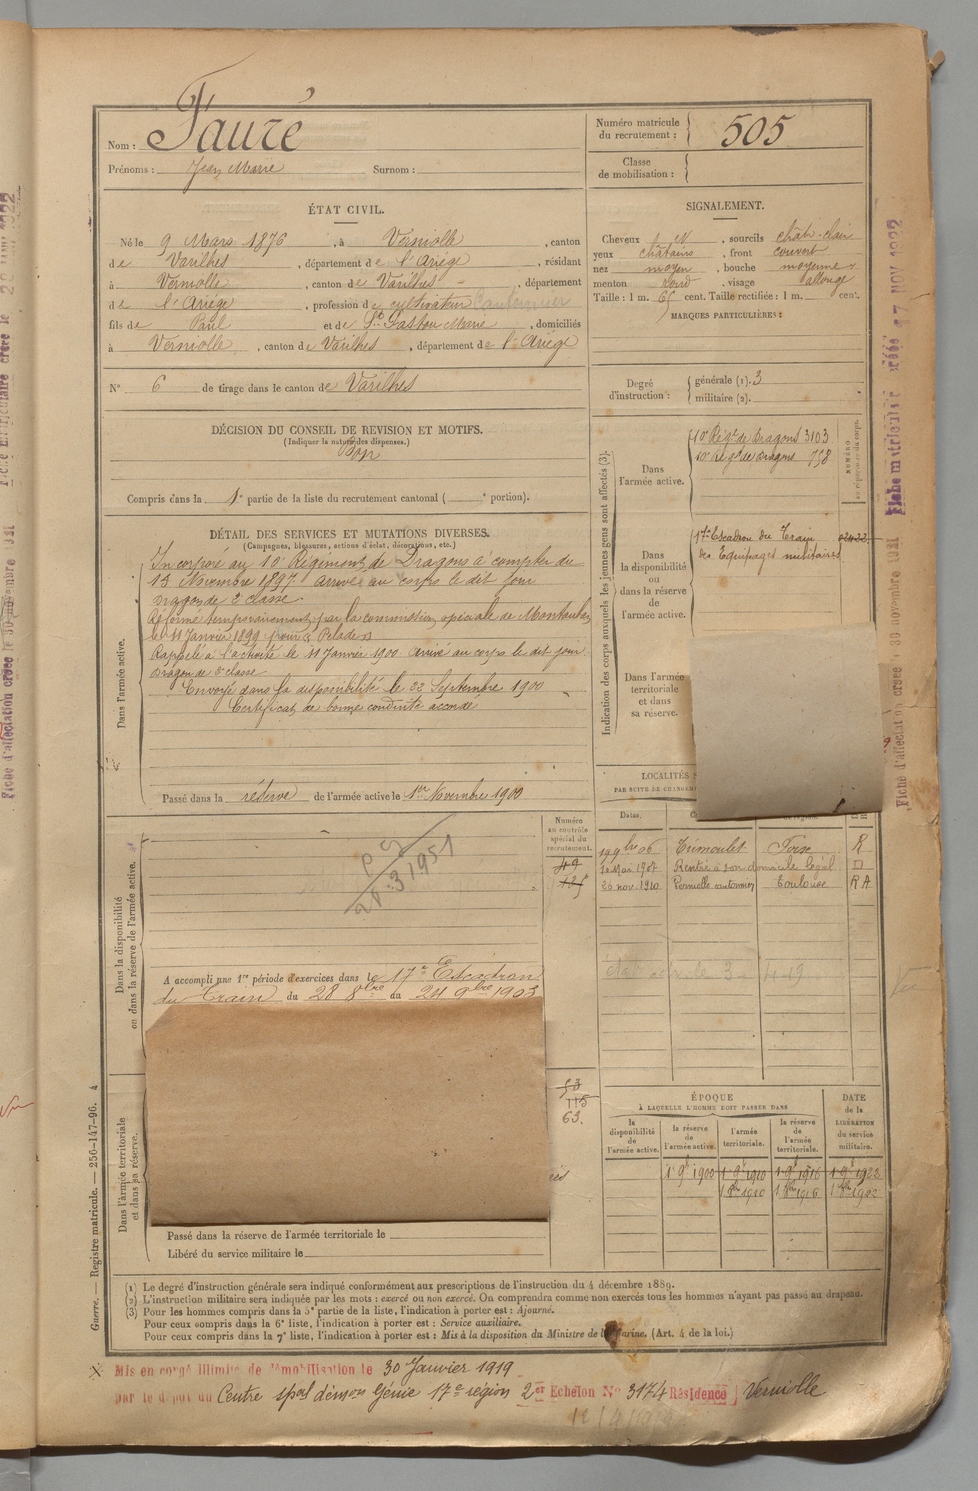 Nom : Fauré
Prénoms : Jean Marie Surnom :
Numéro matricule du recrutement : 505
Classe de mobilisation :
ÉTAT CIVIL.
Né le 9 Mars 1876, à Verniolle, canton
de Varilhes, département de l'Ariège, résidant
à Verniolle, canton de Varilhes, département
de l'Ariège, profession de cultivateur Cantonnier
fils de Paul et de Marie, domiciliés
à Verniolle, canton de Varilhes, département de l'Ariège
N° 6 de tirage dans le canton de Varilhes
SIGNALEMENT.
Cheveux , sourcils chât-clair
yeux châtains, front couvert
nez moyen, bouche moyenne
menton rond, visage allongé
Taille : 1 m. 65 cent. Taille rectifiée : 1 m. cent.
MARQUES PARTICULIÈRES :
Degré d'instruction : générale (1). 3
militaire (2).
DÉCISION DU CONSEIL DE REVISION ET MOTIFS.
(Indiquer la nature des dispenses.)
Bon
Compris dans la 1e partie de la liste du recrutement cantonal ( e portion).
DÉTAIL DES SERVICES ET MUTATIONS DIVERSES.
(Campagnes, blessures, actions d'éclat, décorations, etc.)
Dans l'armée active.
Incorporé au 10e Régiment de Dragons à compter du
13 Novembre 1897 arrivé au corps le dit jour
Dragon de 2e classe.
Réformé temporairement par la commission spéciale de Montauban
le 11 Janvier 1899 pour Pelade
Rappelé à l'activité le 11 Janvier 1900 Arrivé au corps le dit jour
Dragon de 2e classe
Envoyé dans la disponibilité le 22 Septembre 1900
Certificat de bonne conduite accordé
Passé dans la réserve de l'armée active le 1er Novembre 1900
Indication des corps auxquels les jeunes gens sont affectés (3).
NUMÉRO
au répertoire du corps.
Dans l'armée active.
10e Régt de Dragons 3103
10e Régt de Dragons 758
Dans la disponibilité ou dans la réserve de l'armée active.
17e Escadron du Train
des Equipages militaires
Dans l'armée territoriale et dans sa réserve.
LOCALITÉS
PAR SUITE DE CHANGEM
Dates.
19 9bre 06 Trimoulet Foix R
Mai 1907 Rentré à son domicile légal D
20 nov. 1910 Toulouse R A
Dans la disponibilité
ou dans la réserve de l'armée active.
Numéro au contrôle spécial du recrutement.
49
125
A accompli une 1re période d'exercices dans le 17e Escadron
du Train du 28 8bre au 24 9bre 1903
Dans l'armée territoriale
et dans sa réserve.
53
115
63.
Passé dans la réserve de l'armée territoriale le
Libéré du service militaire le
ÉPOQUE
À LAQUELLE L'HOMME DOIT PASSER DANS
la disponibilité de l'armée active.
la réserve de l'armée active.
l'armée territoriale.
la réserve de l'armée territoriale.
DATE de la LIBÉRATION du service militaire.
1 9e 1900 1 9e 1910 1 9e 1916 1 9e 1922
1 8bre 1910 1 8bre 1916 1 8bre 1922
(1) Le degré d'instruction générale sera indiqué conformément aux prescriptions de l'instruction du 4 décembre 1889.
(2) L'instruction militaire sera indiquée par les mots : exercé ou non exercé. On comprendra comme non exercés tous les hommes n'ayant pas passé au drapeau.
(3) Pour les hommes compris dans la 5e partie de la liste, l'indication à porter est : Ajourné.
Pour ceux compris dans la 6e liste, l'indication à porter est : Service auxiliaire.
Pour ceux compris dans la 7e liste, l'indication à porter est : Mis à la disposition du Ministre de la Marine. (Art. 4 de la loi.)
Guerre. — Registre matricule. — 256-147-96. 4
X Mis en congé illimité de démobilisation le 30 Janvier 1919
par le dépôt du Centre spal démon Génie 17e région 2er Echelon N° 3174 Résidence Verniolle